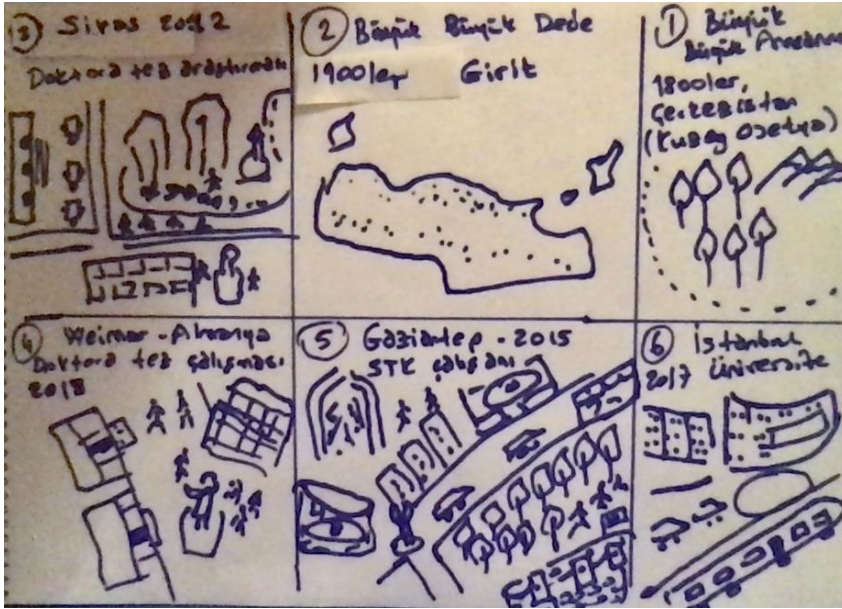 3 Sivas 2012
Doktora tez araştırması
2 Büyük Büyük Dede
1900ler Girit
1 Büyük
Büyük Anneanne
1800ler,
Çerkezistan
(Kuzey Osetya)
4 Weimar - Almanya
Doktora tez çalışması
2018
5 Gaziantep - 2015
STK çalışanı
6 İstanbul
2017 Üniversite